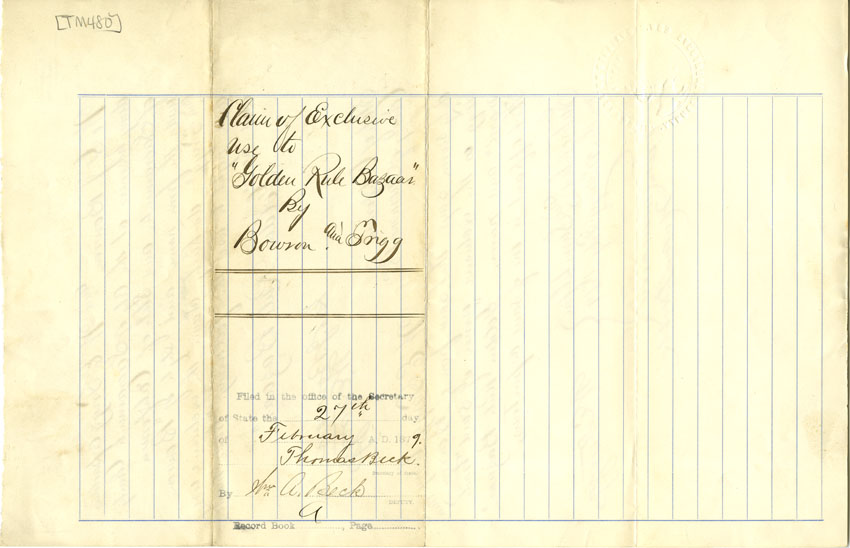 [TM480]
Claim of Exclusive
use to
"Golden Rule Bazaar"
By
Bowson and Grigg
Filed in the office of the Secretary
of State the 27th day
of February A.D. 1879.
Thomas Beck.
Secretary of State.
By Wm A. Beck
DEPUTY.
Record Book , Page